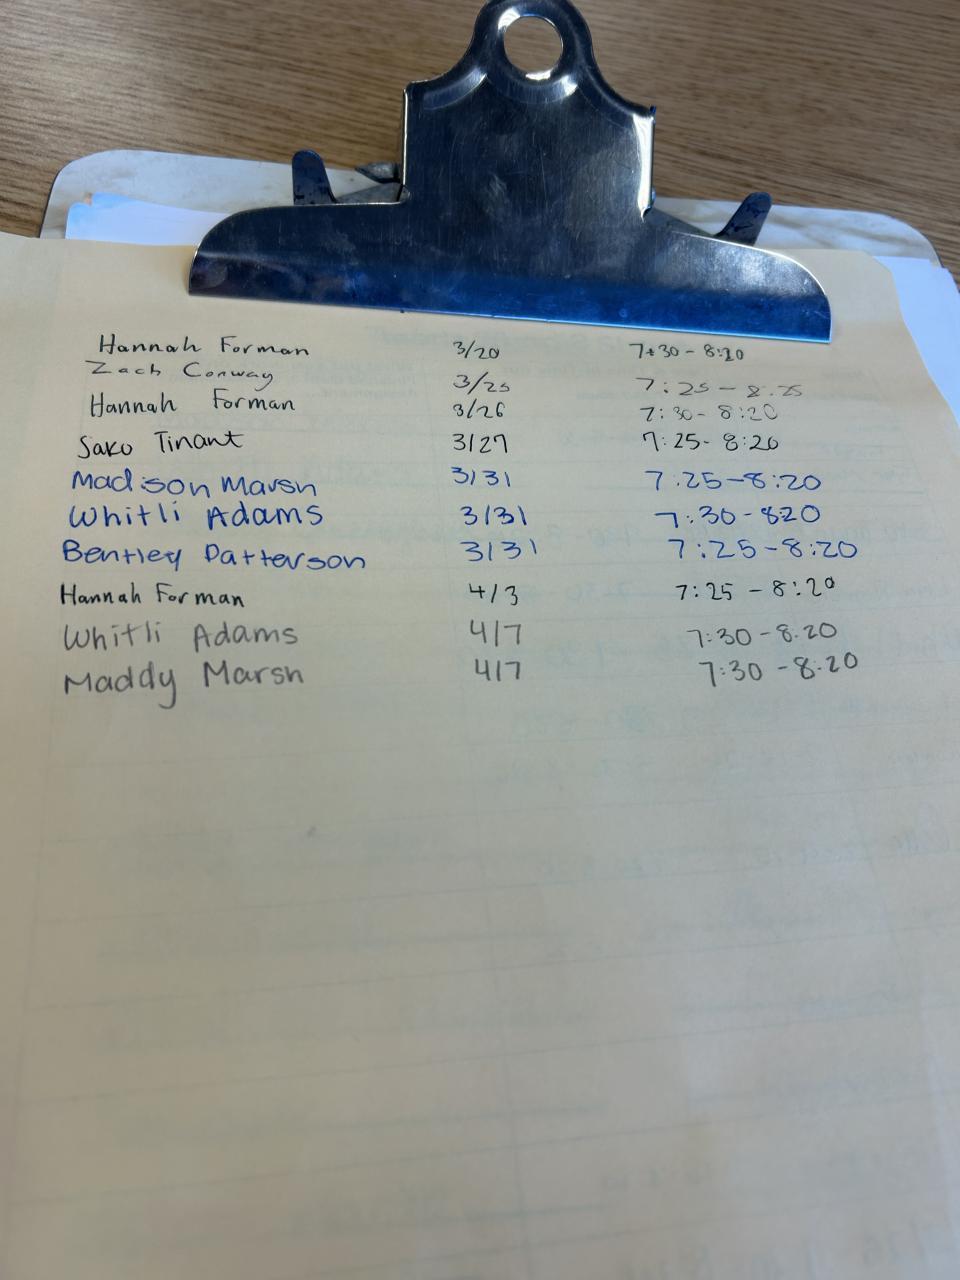 Hannah Forman 3/20 7:30 - 8:20
Zach Conway 3/25 7:25 - 8:25
Hannah Forman 3/26 7:30 - 8:20
Sako Tinant 3/27 7:25 - 8:20
Madison Marsh 3/31 7:25 - 8:20
Whitli Adams 3/31 7:30 - 820
Bentley Patterson 3/31 7:25 - 8:20
Hannah Forman 4/3 7:25 - 8:20
Whitli Adams 4/7 7:30 - 8:20
Maddy Marsh 4/7 7:30 - 8:20